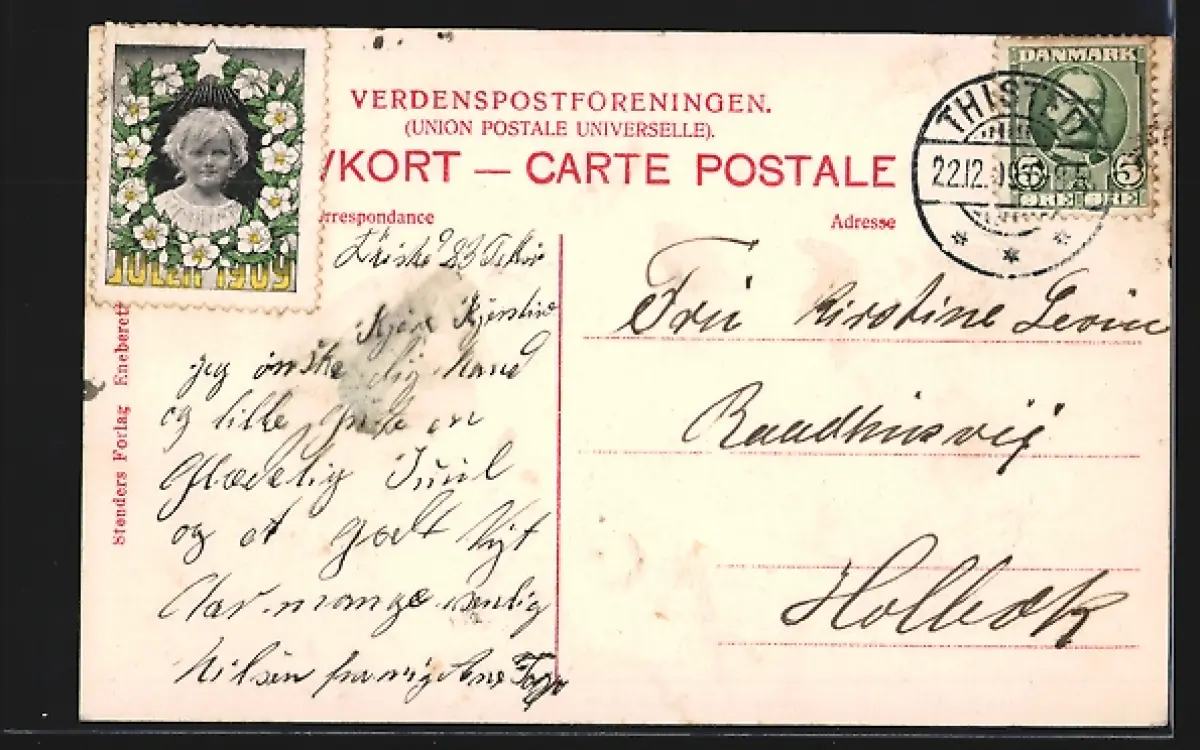 DANMARK
THISTED
22.12.09
5 5
ØRE ØRE
JULEN 1909
VERDENSPOSTFORENINGEN.
(UNION POSTALE UNIVERSELLE).
VKORT — CARTE POSTALE
rrespondance
Adresse
Stenders Forlag Eneberett
Kjære Kjerstine
jeg ønske dig mand
og lille en
Glædelig Juul
og et godt Nyt
Aar mange venlig
Hilsen fra mig Ane
Fru Kirstine
Raadhusvej
Holbæk